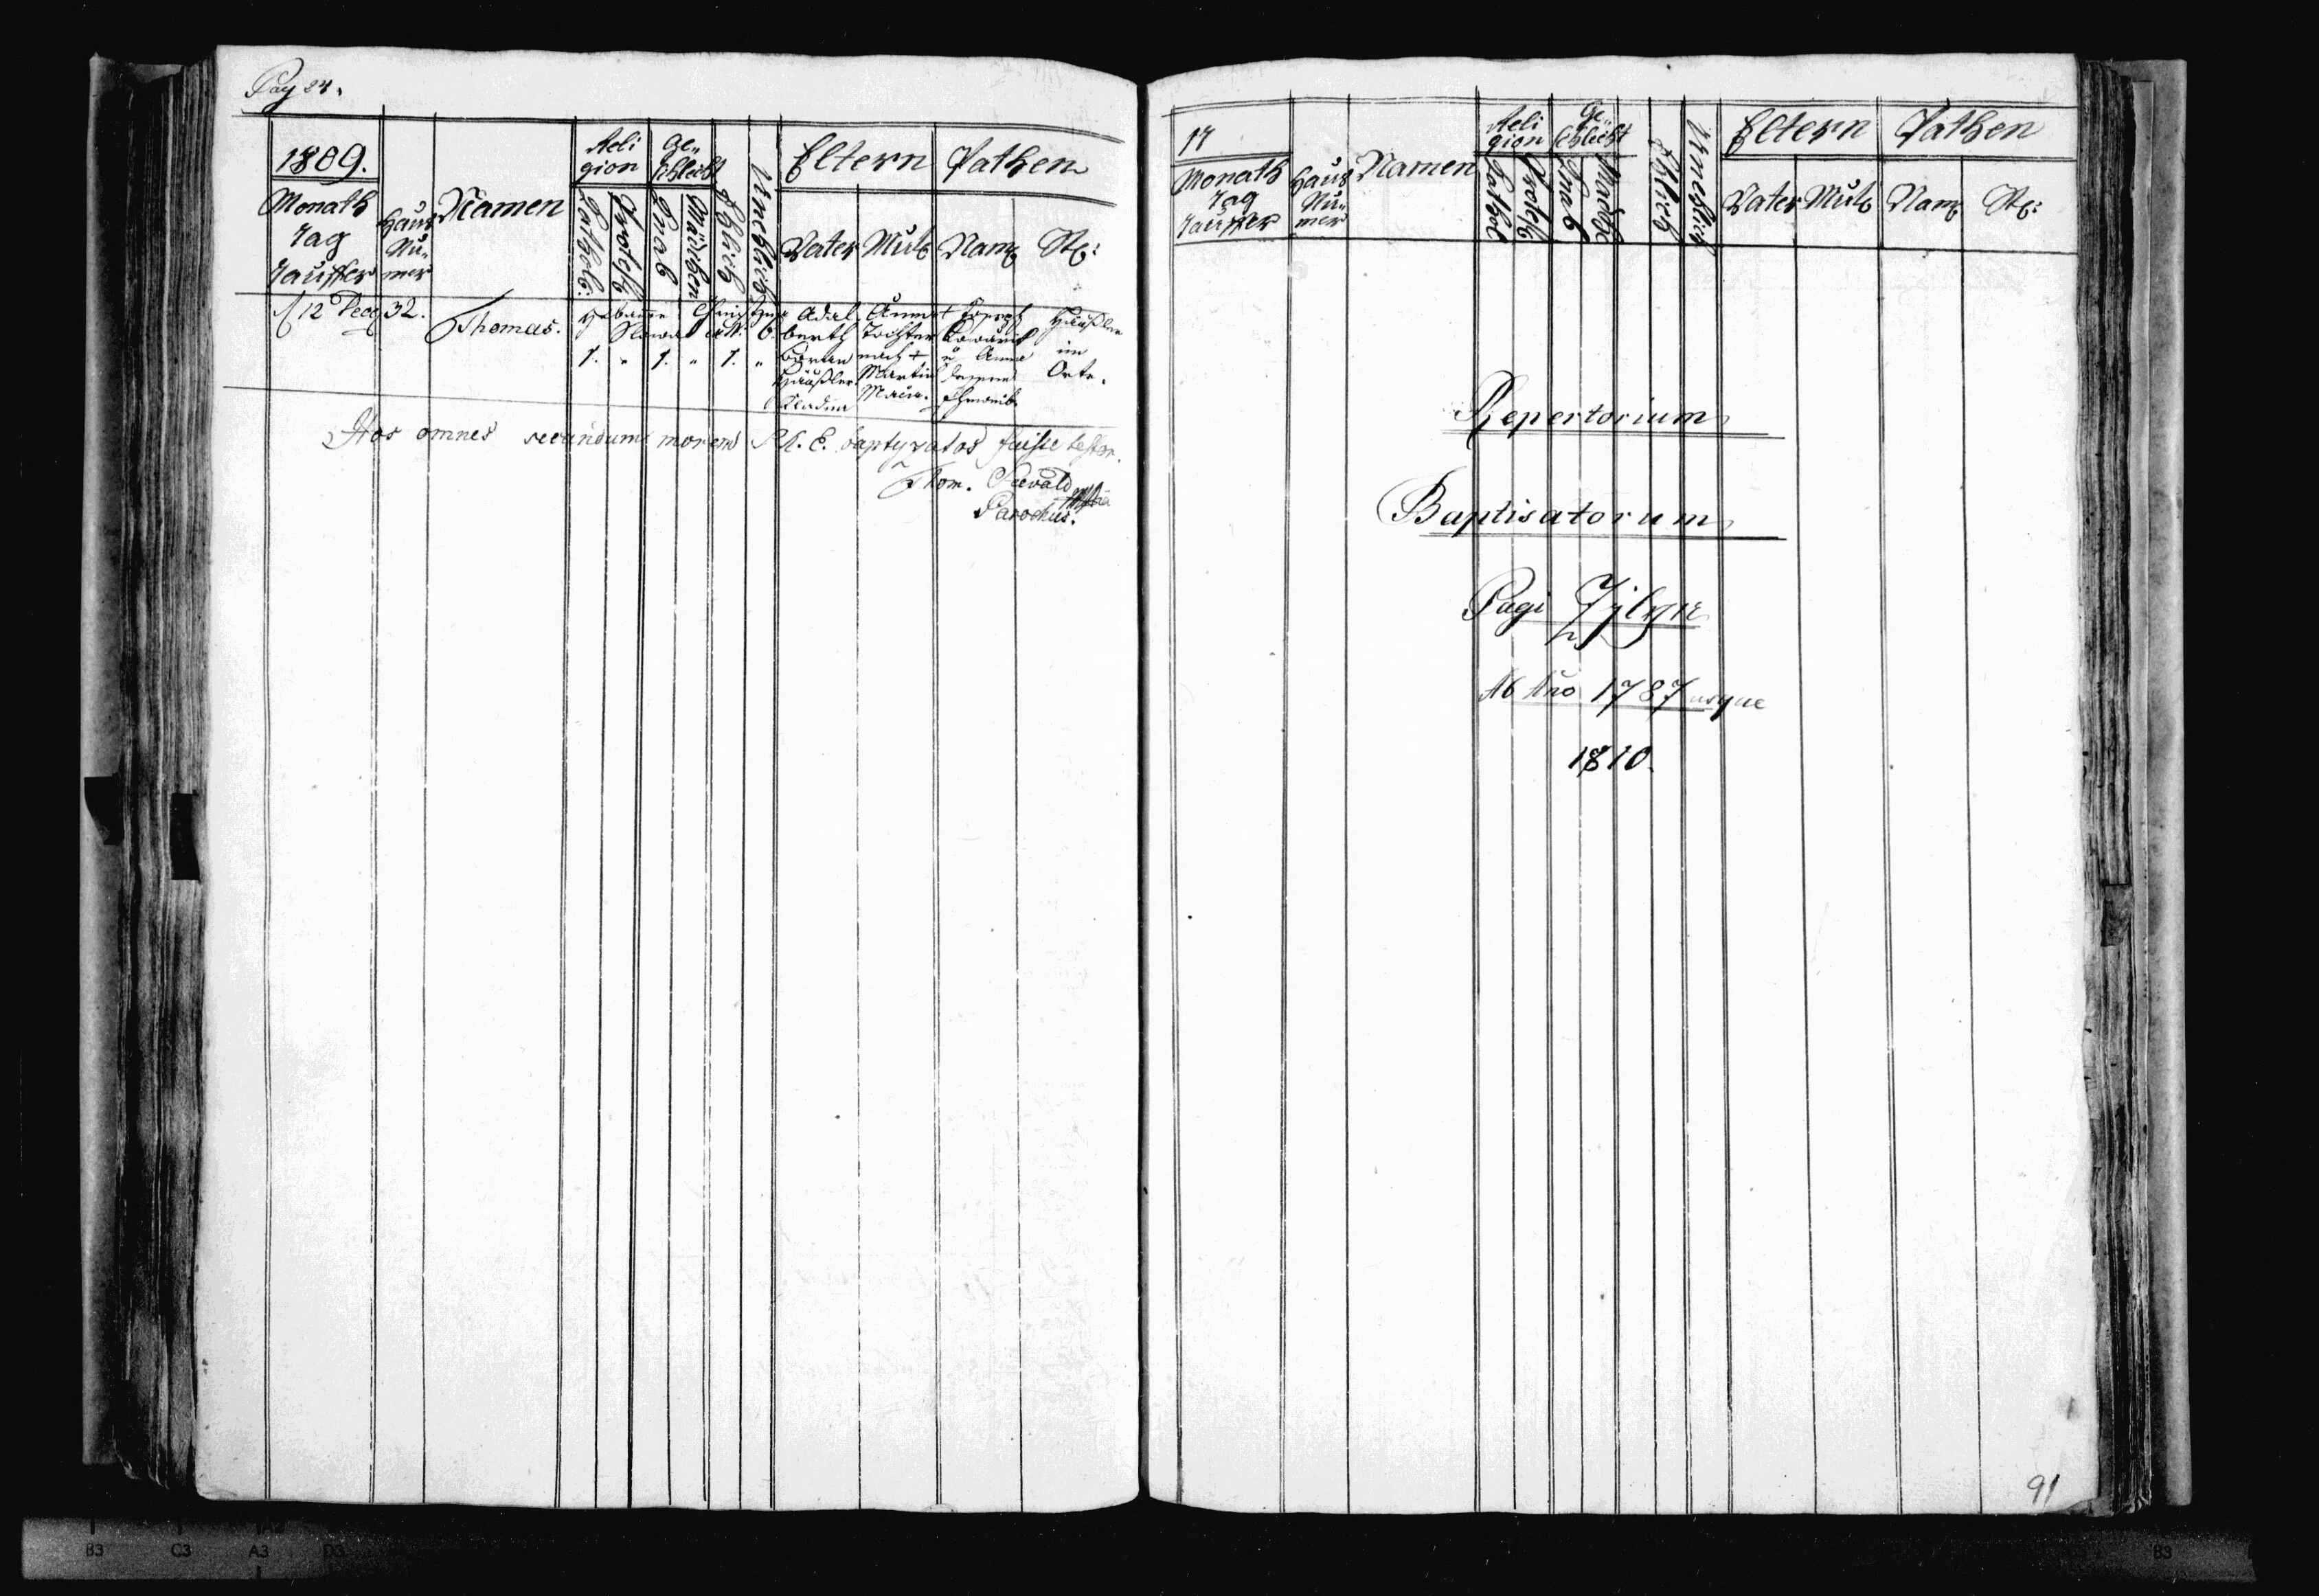 Pag 24.
1809.
Monath
Tag
Tauffer
Haus
Nu-
mer
Namen
Reli
gion
Cathol:
Protest
Ge-
schlecht
Knab
Mädchen
Ehlich
Unehlich
Eltern
Vater
Mut
Pathen
Nam
St:
12 Dec
32.
Thomas.
1. " 1. " 1. "
Adal
berth
Häußler
Anna
Tochter
nach †
Martin
Joseph
u Anna
Häußler
im
Orte.
Hos omnes secundum morem R. E. baptyzatos fuisse testor.
Thom. Seevald
Parochus.
17
Monath
Tag
Tauffer
Haus
Nu-
mer
Namen
Reli
gion
Cathol
Protest
Ge-
schlecht
Knab
Madch
Ehlich
Unehlich
Eltern
Vater
Mut
Pathen
Nam
St:
Repertorium
Baptisatorum
Pagi
Ab Ano 1787 usque
1810.
91
B3 C3 A3 D3
B3